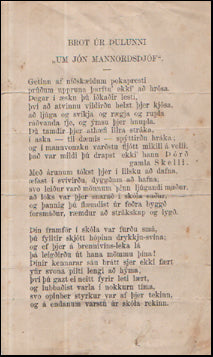 BROT ÚR ÞULUNNI
„UM JÓN MANNORÐSÞJÓF“.
Getinn af níðskældum pokapresti
prúðum uppruna þarftu' ekki að hrósa.
Degar í æsku þú lókaðir lesti,
því að atvinnu vildirðu helst þjer kjósa,
að ljúga og svíkja og rægja og rupla
ráðvanda fje, og ýmsu þjer hnupla.
Þú tamdir þjer athæfi illra stráka,
í aska — til dæmis — spýttirðu hráka;
og í manavonsku varðstu fljótt mikill á velli,
það var mildi þú drapst ekki hann Þórð
gamla á Skelli.
Með árunum tókst þjer í illsku að dafna,
æfast í svívirðu, dygðum að hafna,
svo leiður varð mönnum þinn ljúgandi maður,
að loks var þjer snarað í skóla auður,
og þannig þú flæmdist úr föðra bygð
forsmáður, ræmdur að strákskap og lygð.
Din framför í skóla var furðu smá,
þú fylltir skjótt hópinn drykkju-svína;
og ef þjer á brennivíns-leka lá
þú leigðirðu út hana mömmu þína!
Þínir kennarar sáu brátt sjer ekki fært
yfir svona pilti lengi að hýma,
því þú gast ei neitt fyrir leti lært,
og lubbaðist varla í nokkurn tíma,
svo opinber styrkur var af þjer tekinn,
og á endanum varstu úr skóla rekinn.